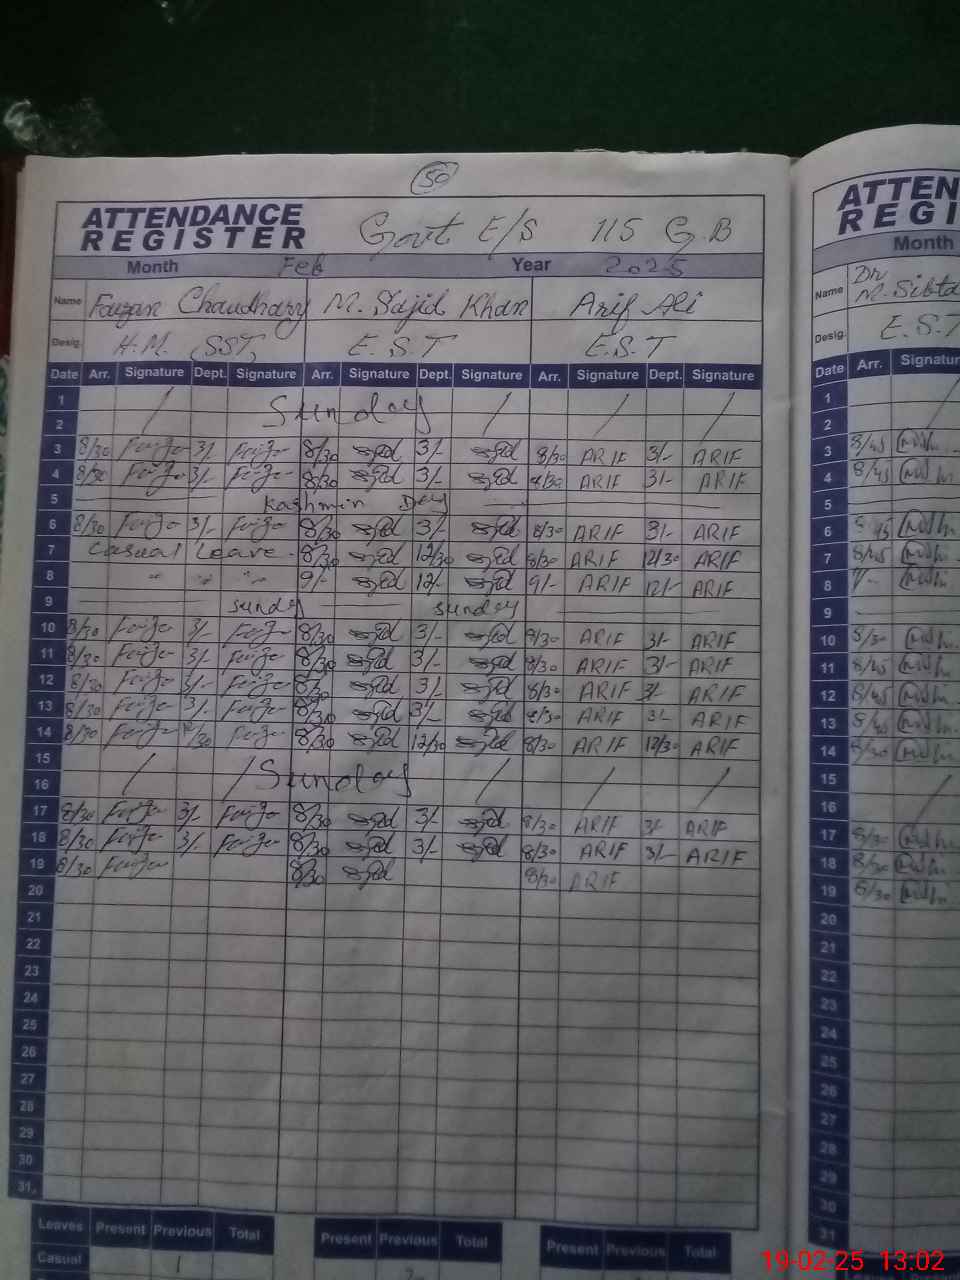 50
ATTENDANCE REGISTER Govt E/S 115 G.B
Month Feb Year 2025
Name Faizan Chaudhary M. Sajid Khan Arif Ali
Desig. H.M. (SST) E.S.T E.S.T
Date Arr. Signature Dept. Signature Arr. Signature Dept. Signature Arr. Signature Dept. Signature
1
2 Sunday
3 8/30 3/- 8/30 3/- 8/30 ARIF 3/- ARIF
4 8/30 3/- 8/30 3/- 8/30 ARIF 3/- ARIF
5 Kashmir Day
6 8/30 3/- 8/30 3/- 8/30 ARIF 3/- ARIF
7 Casual Leave 8/30 12/30 8/30 ARIF 12/30 ARIF
8 " " " 9/- 12/- 9/- ARIF 12/- ARIF
9 Sunday Sunday
10 8/30 3/- 8/30 3/- 8/30 ARIF 3/- ARIF
11 8/30 3/- 8/30 3/- 8/30 ARIF 3/- ARIF
12 8/30 3/- 8/30 3/- 8/30 ARIF 3/- ARIF
13 8/30 3/- 8/30 3/- 8/30 ARIF 3/- ARIF
14 8/30 12/30 8/30 12/30 8/30 ARIF 12/30 ARIF
15
16 Sunday
17 8/30 3/- 8/30 3/- 8/30 ARIF 3/- ARIF
18 8/30 3/- 8/30 3/- 8/30 ARIF 3/- ARIF
19 8/30 8/30 8/30 ARIF
20
21
22
23
24
25
26
27
28
29
30
31
Leaves Present Previous Total Present Previous Total Present Previous Total
Casual 1
ATTEN
REGI
Month
Name Dr M. Sibta
Desig. E.S.T
Date Arr. Signatur
1
2
3 8/45
4 8/45
5
6 45
7 8/45
8
9
10 8/30
11 8/45
12 8/45
13 8/45
14 8/30
15
16
17 8/30
18 8/30
19 8/30
20
21
22
23
24
25
26
27
28
29
30
31
19-02-25 13:02